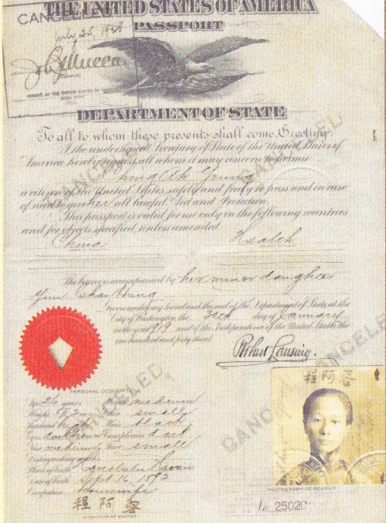 THE UNITED STATES OF AMERICA
CANCELED
July 25, 1928
PASSPORT
DEPARTMENT OF STATE
To all to whom these presents shall come, Greeting:
I the undersigned, Secretary of State of the United States of
America, hereby request all whom it may concern to permit
Ah Young
a citizen of the United States safely and freely to pass, and in case
of need to give her all lawful Aid and Protection.
This passport is valid for use only in the following countries
and for objects specified, unless amended.
China Health
The bearer is accompanied by her minor daughter
Given under my hand and the seal of the Department of State at the
City of Washington, the 30th day of January
in the year 1919 and of the Independence of the United States the
one hundred and forty third.
Robert Lansing.
CANCELED
PERSONAL DESCRIPTION
Age 26 years Mouth medium
Height Chin small
Forehead high Hair black
Eyes Complexion dark
Nose medium Face small
Distinguishing marks
Place of birth Honolulu, Hawaii
Date of birth Sept. 16, 1892
Occupation Housewife
程阿容
SIGNATURE OF BEARER
程阿容
PHOTOGRAPH OF BEARER
No. 25020